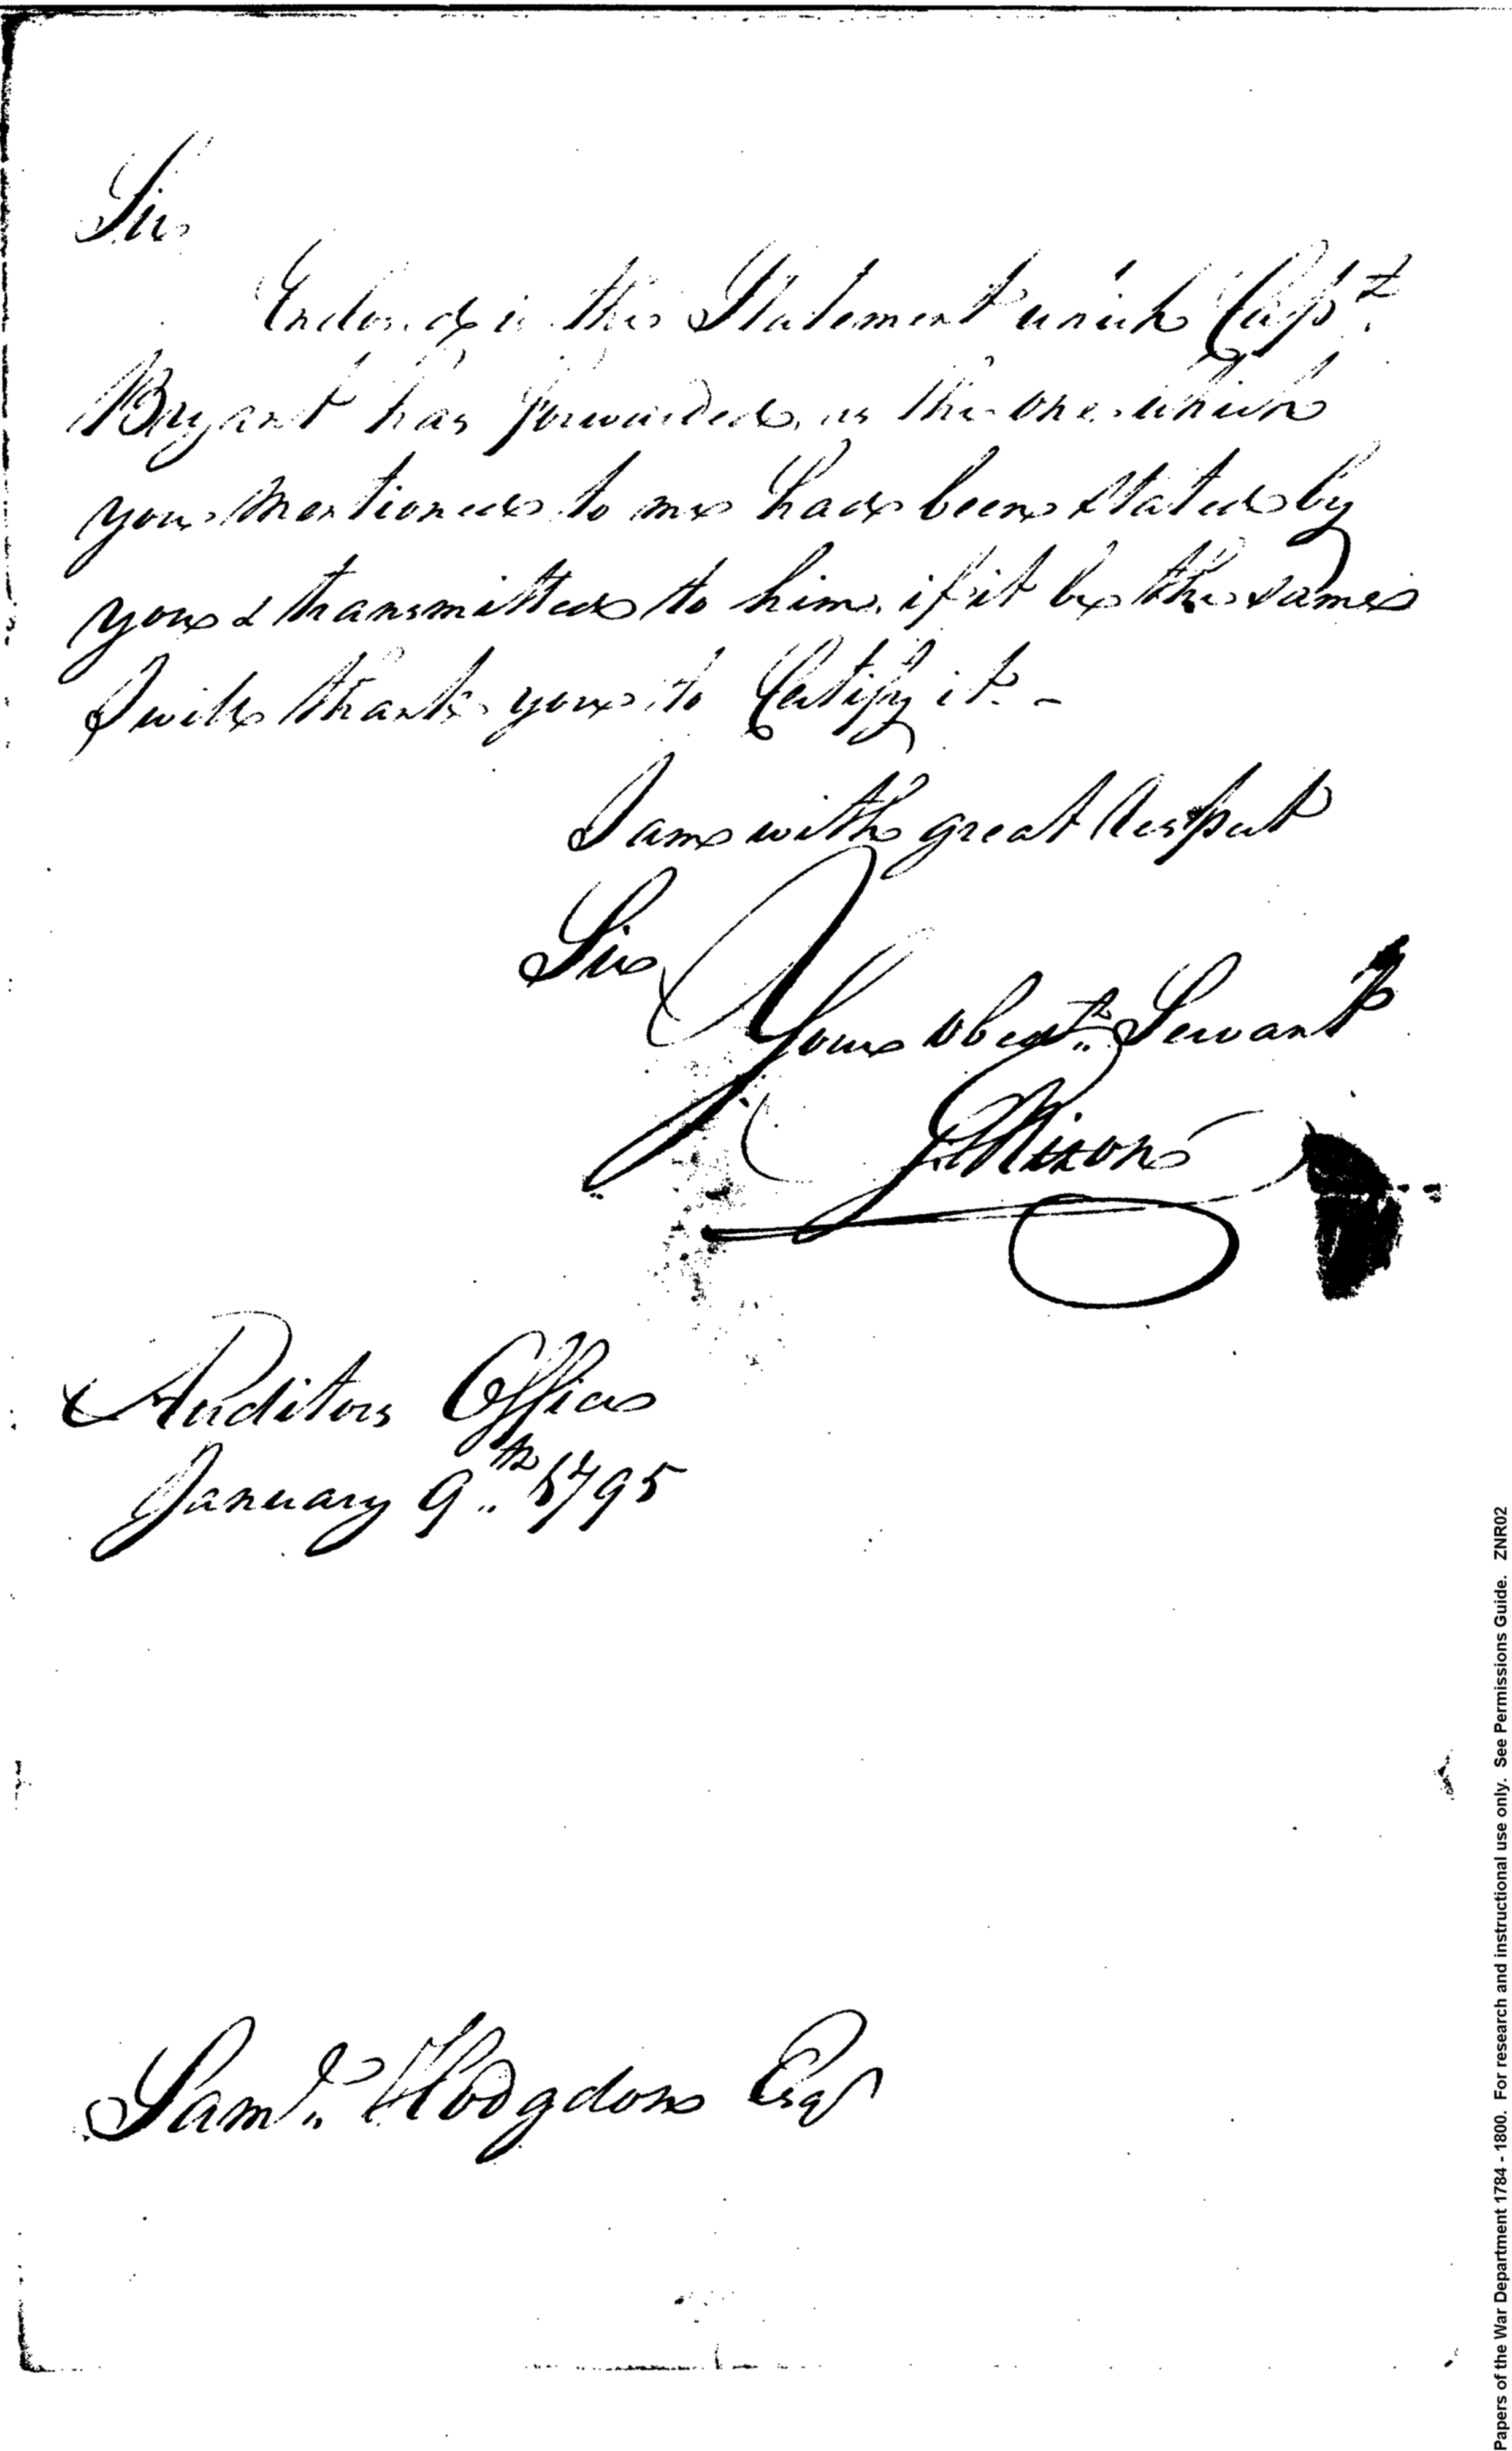 Sir
Enclosed is the Statement which Capt.
Bryant has forwarded, as the one which
you mentioned to me had been stated by
you & transmitted to him, if it be the same
I will thank you to Certify it. -
I am with great Respect
Sir
Your obedt. Servant
Nixon
Auditors Office
January 9th 1795
Saml. Hodgdon Esqr
Papers of the War Department 1784 - 1800. For research and instructional use only. See Permissions Guide. ZNR02